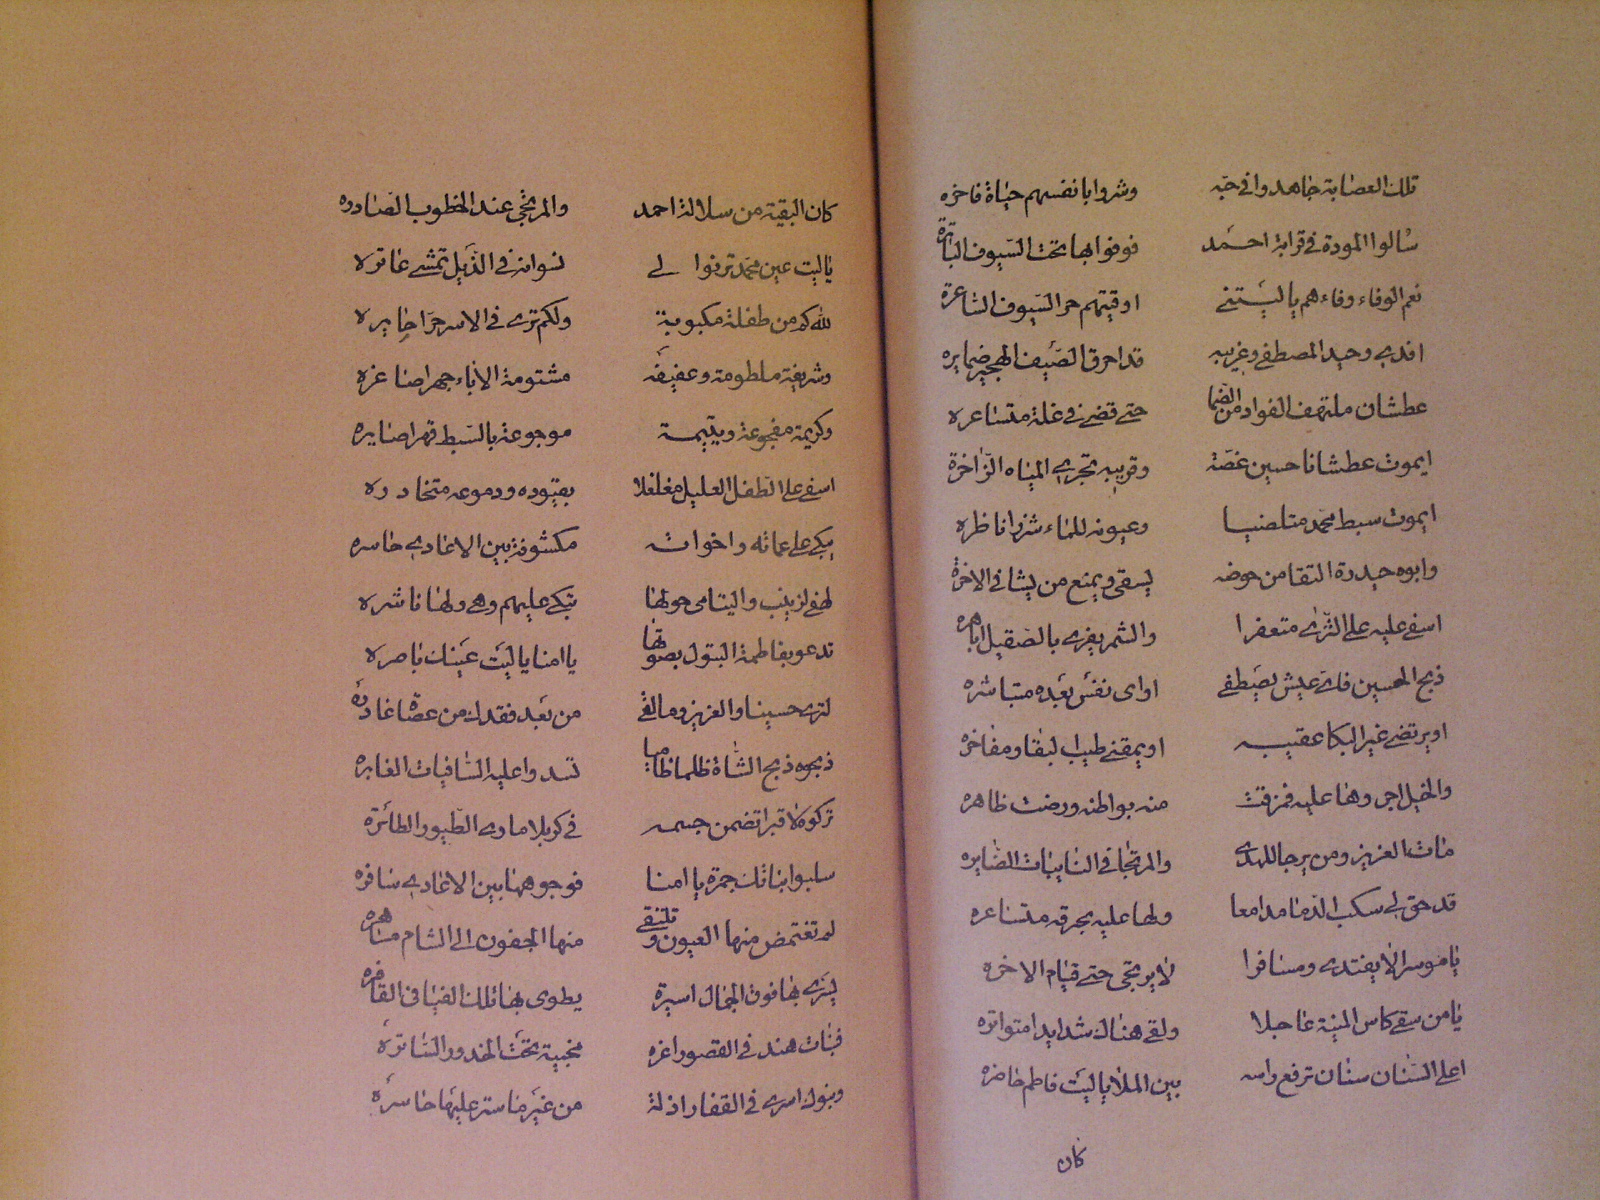 تلك العصابة جاهدوا في حبه وشروا بانفسهم حياة فاخره
سالوا المودة في قرابة احمد فوفوا بها تحت السيوف الباترة
نعم الوفاء وفاءهم يا ليتني اوقيتهم حر السيوف الشاعرة
افدي وحيد المصطفى وغريبه قد احرق الصيف الهجير ضمايره
عطشان ملتهف الفواد من الضما حتى قضى في غلة متساعره
ايموت عطشانا حسين غصة وقريبه تجري المياه الزاخرة
ايموت سبط محمد متلضيا وعيونه للماء شزرا ناظره
وابوه حيدرة التقا من حوضه يسقي ويمنع من يشا في الاخرة
اسفي عليه على الثرى متعفرا والشمر يفري بالصقيل اباهره
ذبح الحسين فاي عيش يصطفى او اي نفس بعده متباشره
او يرتضى غير البكا عقيبه او يمقني طيب لبقا ومفاخره
والخيل اجروها عليه فمزقت منه بواطنه ورضت ظاهره
مات العزيز ومن يرجا للندى والمرتجا في النايبات الضايره
قد حق لي سكب الدما مدامعا ولها عليه بحرقة متساعره
يا موسرا لا يفتدى ومسافرا لا يرتجى حتى قيام الاخره
يا من سقي كاس المنية عاجلا ولقي هناك شدايدا متواتره
اعلى السنان سنان ترفع راسه بين الملا يا ليت فاطم حاضره
كان
كان البقية من سلالة احمد والمرتجى عند الخطوب الصادره
يا ليت عين محمد ترنوا لى نسوانه في الذيل تمشي عاثره
لله كم من طفلة مكبوبة ولكم ترى في الاسر حرا حايره
وشريفة ملطومة وعفيفه مشتومة الاباء جهرا صاغره
وكريمة مفجوعة ويتيمة موجوعة بالسبط قهرا صايره
اسفي على الطفل العليل مغلغلا بقيوده ودموعه متحادره
يبكي على عماته واخواته مكشوفة بين الاعادي حاسره
لهفي لزينب واليتامى حولها تبكي عليهم وهي ولها ناشره
تدعو بفاطمة البتول بصوتها يا امنا يا ليت عينك ناصره
لترى حسينا والعزيز وما لقى من بعد فقدك من عصاة غادره
ذبحوه ذبح الشاة ظلما ظاميا تسدوا عليه السافيات الغابره
تركوه لا قبرا تضمن جسمه في كربلا ماوى الطيور الطائرة
سلبوا بناتك جمرة يا امنا فوجوهها بين الاعادي سافره
لم تغتمض منها العيون وتلتقي منها الجفون الى الشام مساهره
يسرى بها فوق الجمال اسيرة يطوى بها تلك الفيافي القافره
فبنات هند في القصور اعزه مخبية تحت الخدور الساتره
وبنوك اسرى في القفار اذلة من غير ما ستر عليها حاسره